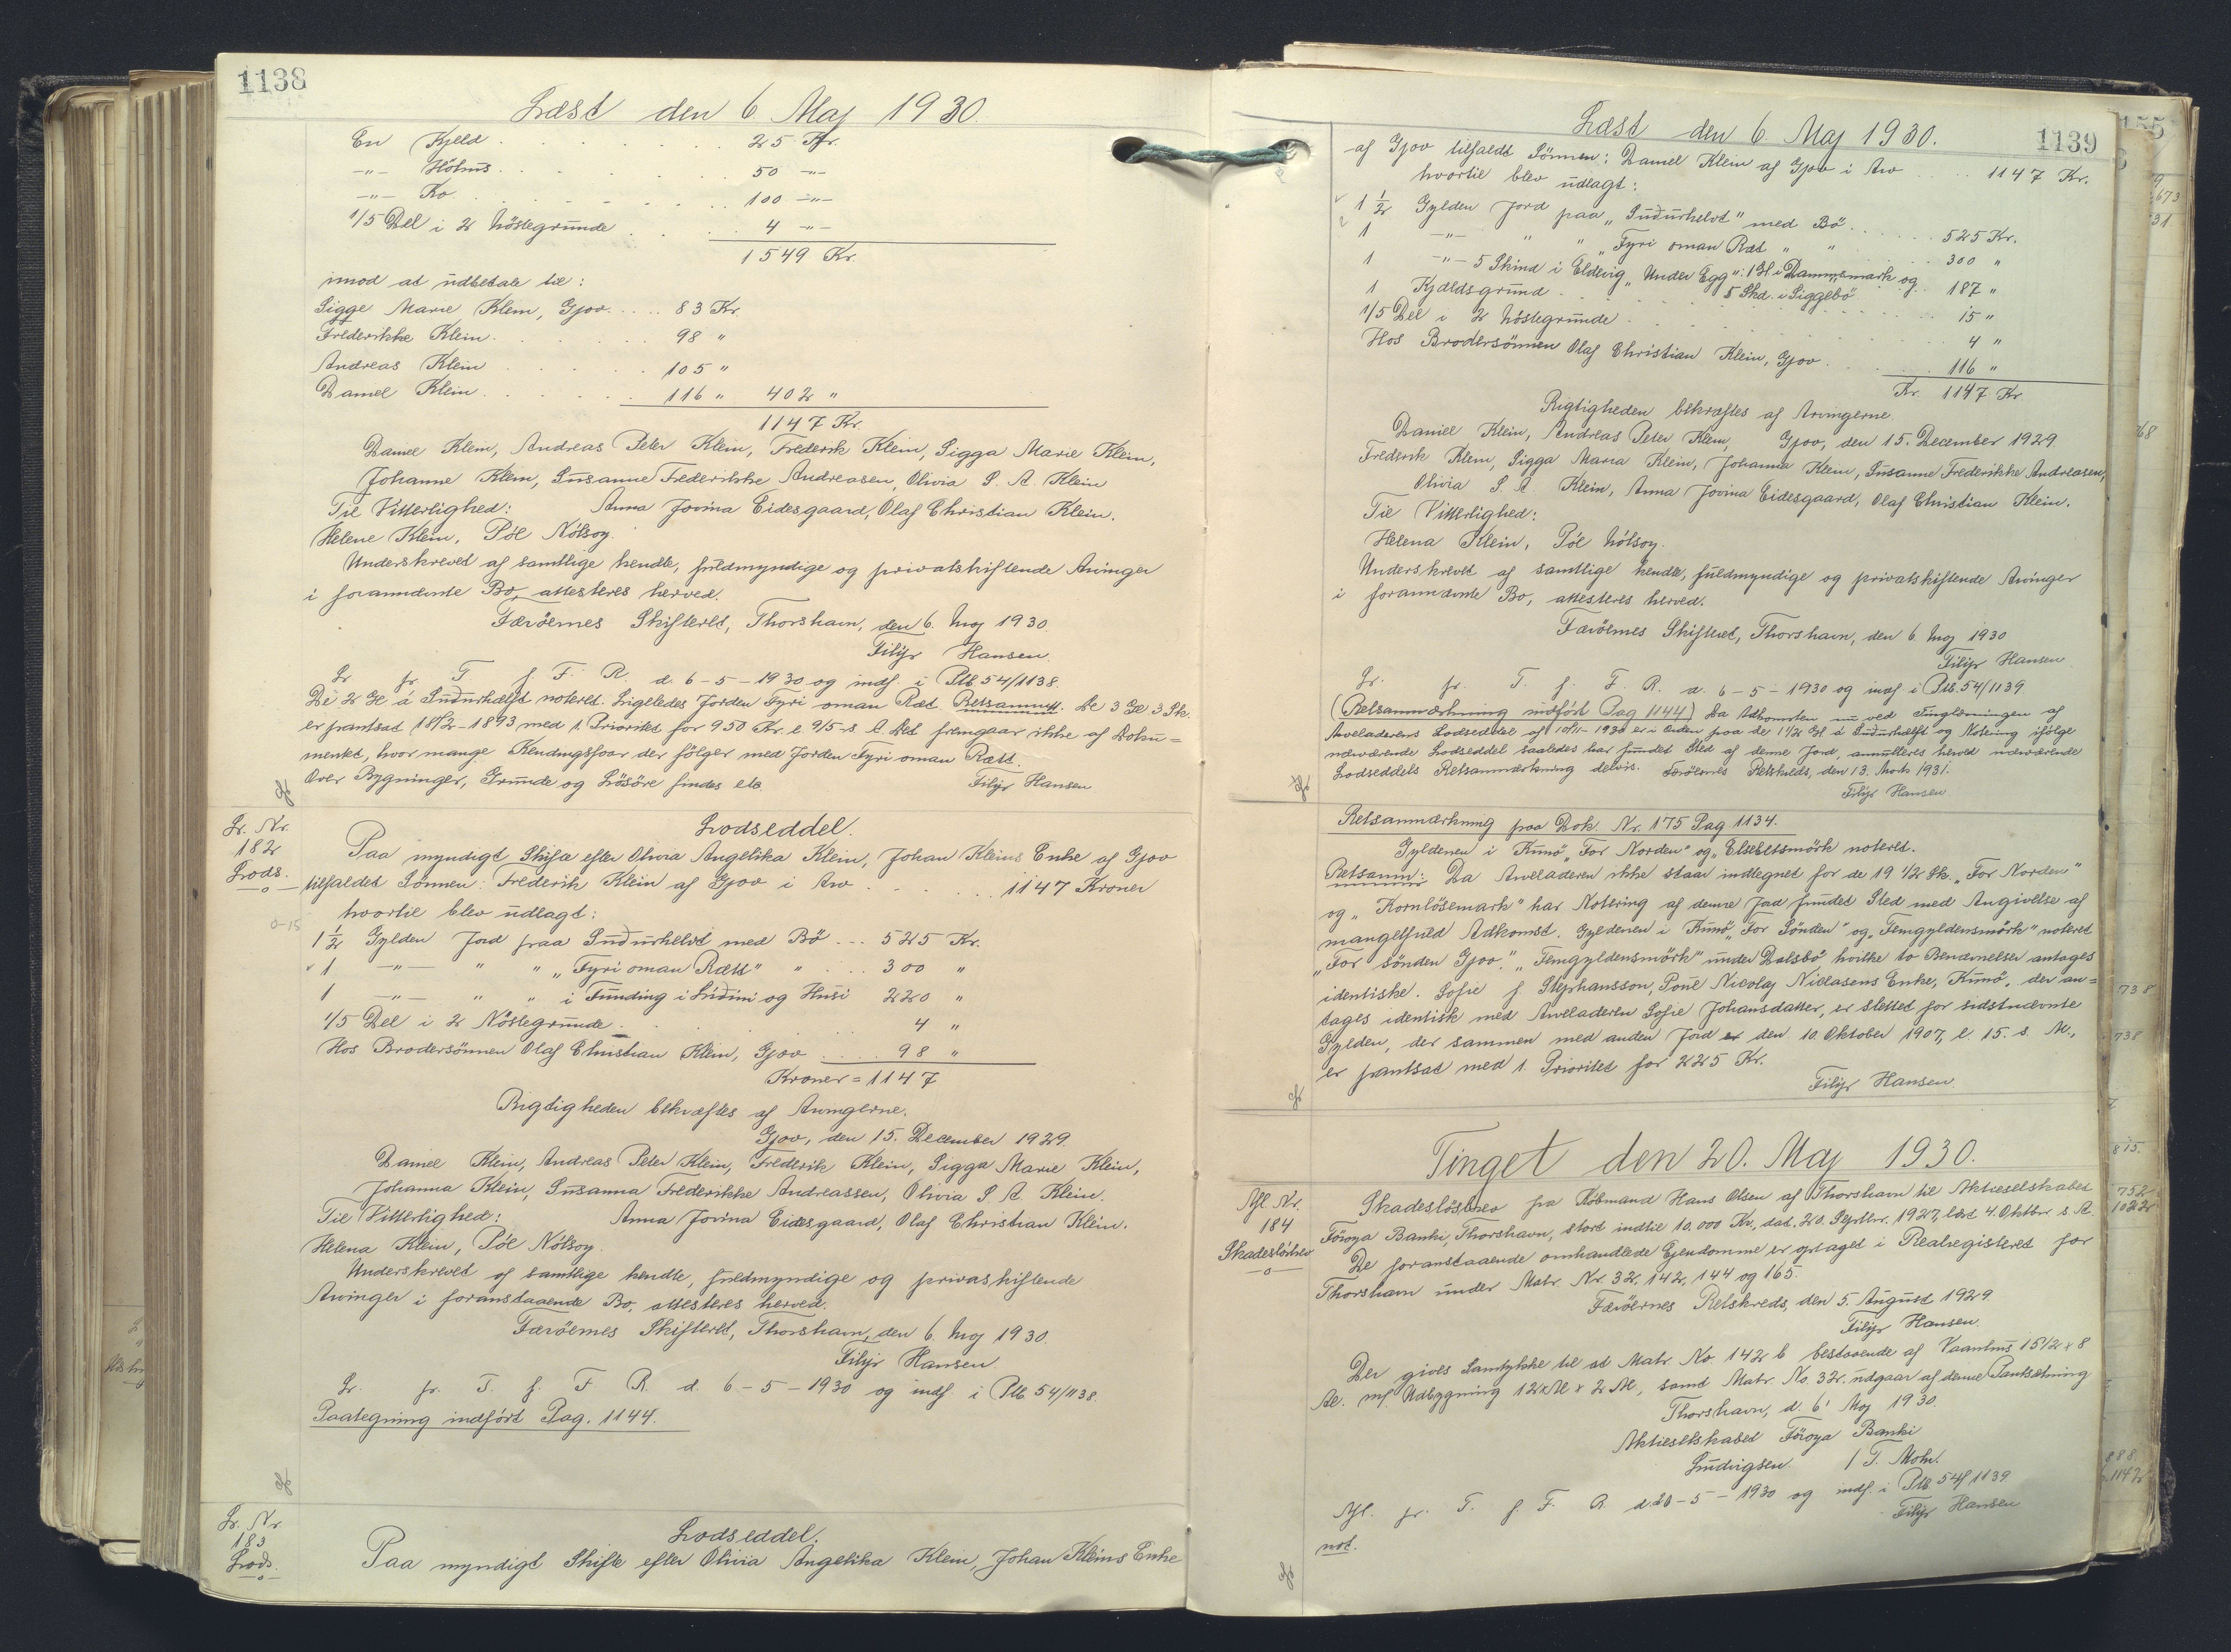 1138
Læst den 6 Maj 1930.
En Kjeld . . . . . . . 25 Kr.
-"- Höhus . . . . . . . 50 -"-
-"- Ko . . . . . . . 100 -"-
1/5 Del i 2 Nöstegrunde . . . 4 -"-
1549 Kr.
imod at udbetale til:
Sigge Marie Klein, Gjov. . . . . 83 Kr.
Frederikke Klein. . . . . . 98 "
Andreas Klein . . . . . 105 "
Daniel Klein. . . . . . 116 " 402 "
1147 Kr.
Daniel Klein, Andreas Peter Klein, Frederik Klein, Sigga Marie Klein,
Johanne Klein, Susanne Frederikke Andreasen, Olivia S. A. Klein
Til Vitterlighed: Anna Jovina Eidesgaard, Olaf Christian Klein.
Helene Klein, Pól Nólsoy.
Underskrevet af samtlige kendte, fuldmyndige og privatskiftende Arvinger
i forannævnte Bo, attesteres herved.
Færöernes Skifteret, Thorshavn, den 6. Maj 1930.
Filip Hansen.
Lr. fr. T. f. F. R. d. 6-5-1930 og indf. i Ptb. 54/1138.
De 2 Gl á Suðurhælft noteret. Ligeledes Jorden Fyri oman Ræt. Retsanm. De 3 Gl 3 Sk.
er pantsat 18/2-1893 med 1. Prioritet for 950 Kr. l. 9/5 s. A. Det fremgaar ikke af Doku=
mentet, hvor mange Kendingsfaar der fölger med Jorden Fyri oman Rætt.
Over Bygninger, Grunde og Lösöre findes etc. Filip Hansen
Lr. Nr.
182
Lods.
Lodseddel.
Paa myndigt Skifte efter Olivia Angelika Klein, Johan Kleins Enke af Gjov
tilfaldet Sönnen: Frederik Klein af Gjov i Arv . . . . . 1147 Kroner
hvortil blev udlagt:
0-15
1 1/2 Gylden Jord paa Suðurhelvt med Bö . . . 525 Kr.
1 -"- " " "Fyri oman Rætt" " . . . 300 "
1 -"- " " i Funding i Lidini og Húsi 220 "
1/5 Del i 2 Nöstegrunde . . . . . . 4 "
Hos Brodersönnen Olaf Christian Klein, Gjov . . . . 98 "
Kroner = 1147
Rigtigheden bekræftes af Arvingerne.
Gjov, den 15. December 1929.
Daniel Klein, Andreas Peter Klein, Frederik Klein, Sigga Marie Klein,
Johanna Klein, Susanna Frederikke Andreassen, Olivia S. A. Klein.
Til Vitterlighed: Anna Jovina Eidesgaard, Olaf Christian Klein.
Helena Klein, Pól Nólsoy.
Underskrevet af samtlige kendte, fuldmyndige og privaskiftende
Arvinger i foranstaaende Bo, attesteres herved.
Færöernes Skifteret, Thorshavn, den 6. Maj 1930.
Filip Hansen.
Lr. fr. T. f. F. R. d. 6-5-1930 og indf. i Ptb 54/1138.
Paategning indfört Pag. 1144.
Lr. Nr.
183
Lods.
Lodseddel.
Paa myndigt Skifte efter Olivia Angelika Klein, Johan Kleins Enke
1139
Læst den 6. Maj 1930.
af Gjov tilfaldt Sönnen: Daniel Klein af Gjov i Arv . . . . 1147 Kr.
hvortil blev udlagt:
1 1/2 Gylden Jord paa "Suðurhelvt" med Bö . . . . . . 525 Kr.
1 -"- " " "Fyri oman Ræt " " . . . 300 "
1 -"- 5 Skind i Eldevig "Under Egg": 1 Gl i Dammsmark og . 187 "
5 Skd. i Siggebö
1 Kjældsgrund . . . . . . . . . 15 "
1/5 Del i 2 Nöstegrunde . . . . . . . 4 "
Hos Brodersönnen Olaf Christian Klein, Gjov . . . . . 116 "
Kr. 1147 Kr.
Rigtigheden bekræftes af Arvingerne.
Gjov, den 15. December 1929
Daniel Klein, Andreas Peter Klein,
Fredrik Klein, Sigga Maria Klein, Johanna Klein, Susanne Frederikke Andreasen,
Olivia S. A. Klein, Anna Jovina Eidesgaard, Olaf Christian Klein.
Til Vitterlighed:
Helena Klein, Pól Nólsoy.
Underskrevet af samtlige kendte, fuldmyndige og privatskiftende Arvinger
i forannævnte Bo, attesteres herved.
Færöernes Skifteret, Thorshavn, den 6. Maj 1930
Filip Hansen
Lr. fr. T. f. F. R. d. 6-5-1930 og indf. i Ptb. 54/1139
(Retsanmærkning indfört Pag 1144) Da Adkomsten nu ved Tinglæsningen af
Arveladerens Lodseddel af 10/11-1930 er i Orden paa de 1 1/2 Gl. á Suðurhælft og Notering ifölge
nærværende Lodseddel saaledes har fundet Sted af denne Jord, annulleres herved nærværende
Lodseddels Retsanmærkning delvis. Færöernes Retskreds, den 13. Marts 1931.
Filip Hansen
Retsanmærkning paa Dok. Nr. 175 Pag 1134.
Gyldenen i Kunö "For Norden" og "Elsebetsmörk noteret.
Retsanm: Da Arveladeren ikke staar indtegnet for de 19 1/2 Sk. "For Norden"
og "Kornlösemark" har Notering af denne Jord fundet Sted med Angivelse af
mangelfuld Adkomst. Gyldenen i Kunö "For Sönden" og "Femgyldensmörk" noteret
"For sönden Gjov." "Femgyldensmörk" under Dalsbö hvilke to Benævnelser antages
identiske. Sofie f. Stephansson, Poul Nicolaj Niclasens Enke, Kunö, der an=
tages identisk med Arveladeren Sofie Johansdatter, er slettet for sidstnævnte
Gylden, der sammen med anden Jord er den 10. Oktober 1907, l. 15. s. M.,
er pantsat med 1. Prioritet for 225 Kr.
Filip Hansen.
Tinget den 20. Maj 1930.
Afl. Nr.
184
Skadeslösbrev
Skadeslösbrev fra Köbmand Hans Olsen af Thorshavn til Aktieselskabet
Föroya Banki, Thorshavn, stort indtil 10.000 Kr., dat. 20. Septbr. 1927, læst 4. Oktbr s. A.
De foranstaaende omhandlede Ejendomme er optaget i Realregisteret for
Thorshavn under Matr. Nr. 32, 142, 144 og 165.
Færöernes Retskreds, den 5. August 1929.
Filip Hansen.
Der gives Samtykke til at Matr. No. 142 b bestaaende af Vaanhus 15 1/2 x 8
Al. m/ Udbygning 12 Al x 2 Al, samt Matr. No. 32. udgaar af denne Pantsætning
Thorshavn, d. 6' Maj 1930.
Aktieselskabet Föroya Banki
Ludvigsen. / T. Mohr.
Afl. fr. T. f. F. R. d. 20-5-1930 og indf. i Ptb 54/1139
Filip Hansen
not.